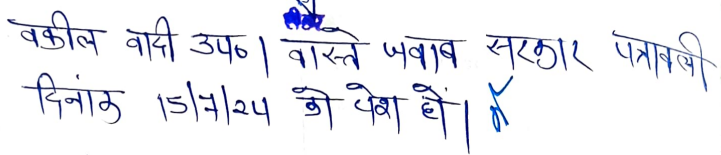 वकील वादी उप०। वास्ते जवाब सरकार पत्रावली
दिनांक 15/7/24 को पेश हों।